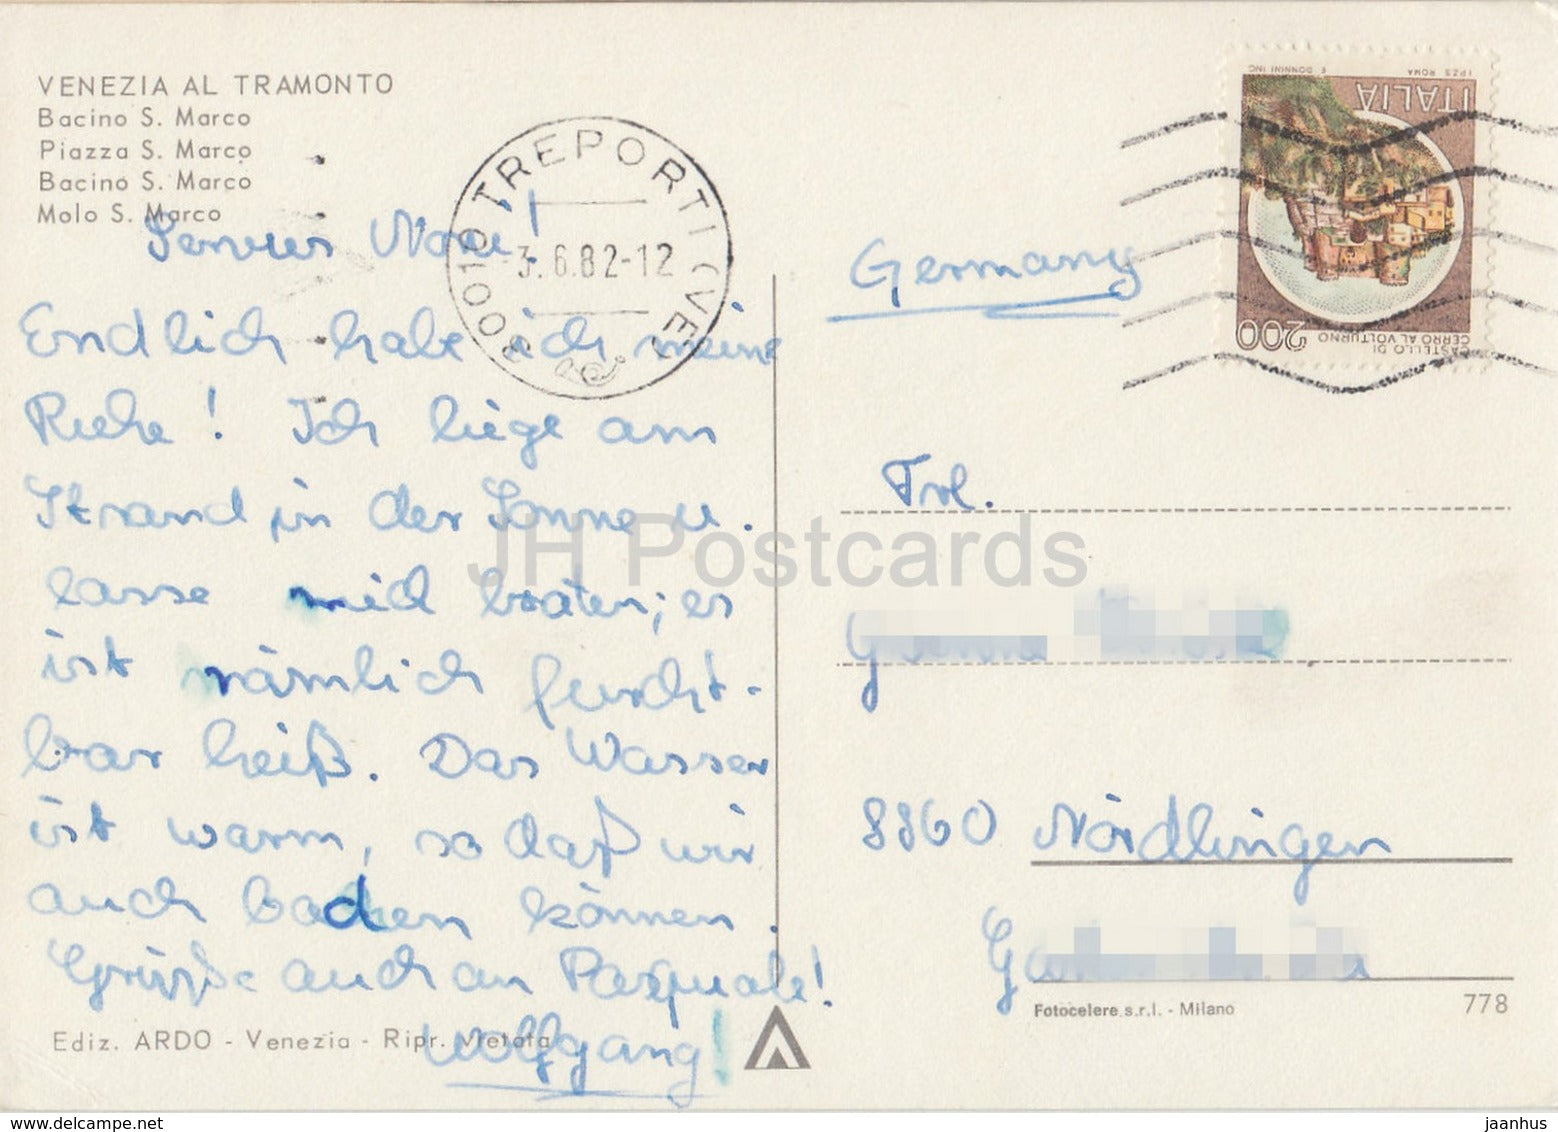 VENEZIA AL TRAMONTO
Bacino S. Marco
Piazza S. Marco
Bacino S. Marco
Molo S. Marco
30010 TREPORTI (VE)
3.6.82-12
I.P.Z.S. ROMA E. DONNINI INC.
ITALIA
200
CASTELLO DI
CERRO AL VOLTURNO
Servus !
Endlich habe ich meine
Ruhe! Ich liege am
Strand in der Sonne u.
lasse mich braten; es
ist nämlich furcht-
bar heiß. Das Wasser
ist warm, so daß wir
auch baden können.
Grüße auch an Pasquale!
Wolfgang!
Germany
Frl.
8860 Nördlingen
JH Postcards
Ediz. ARDO - Venezia - Ripr. Vietata
Fotocelere s.r.l. - Milano
778
delcampe.net
jaanhus